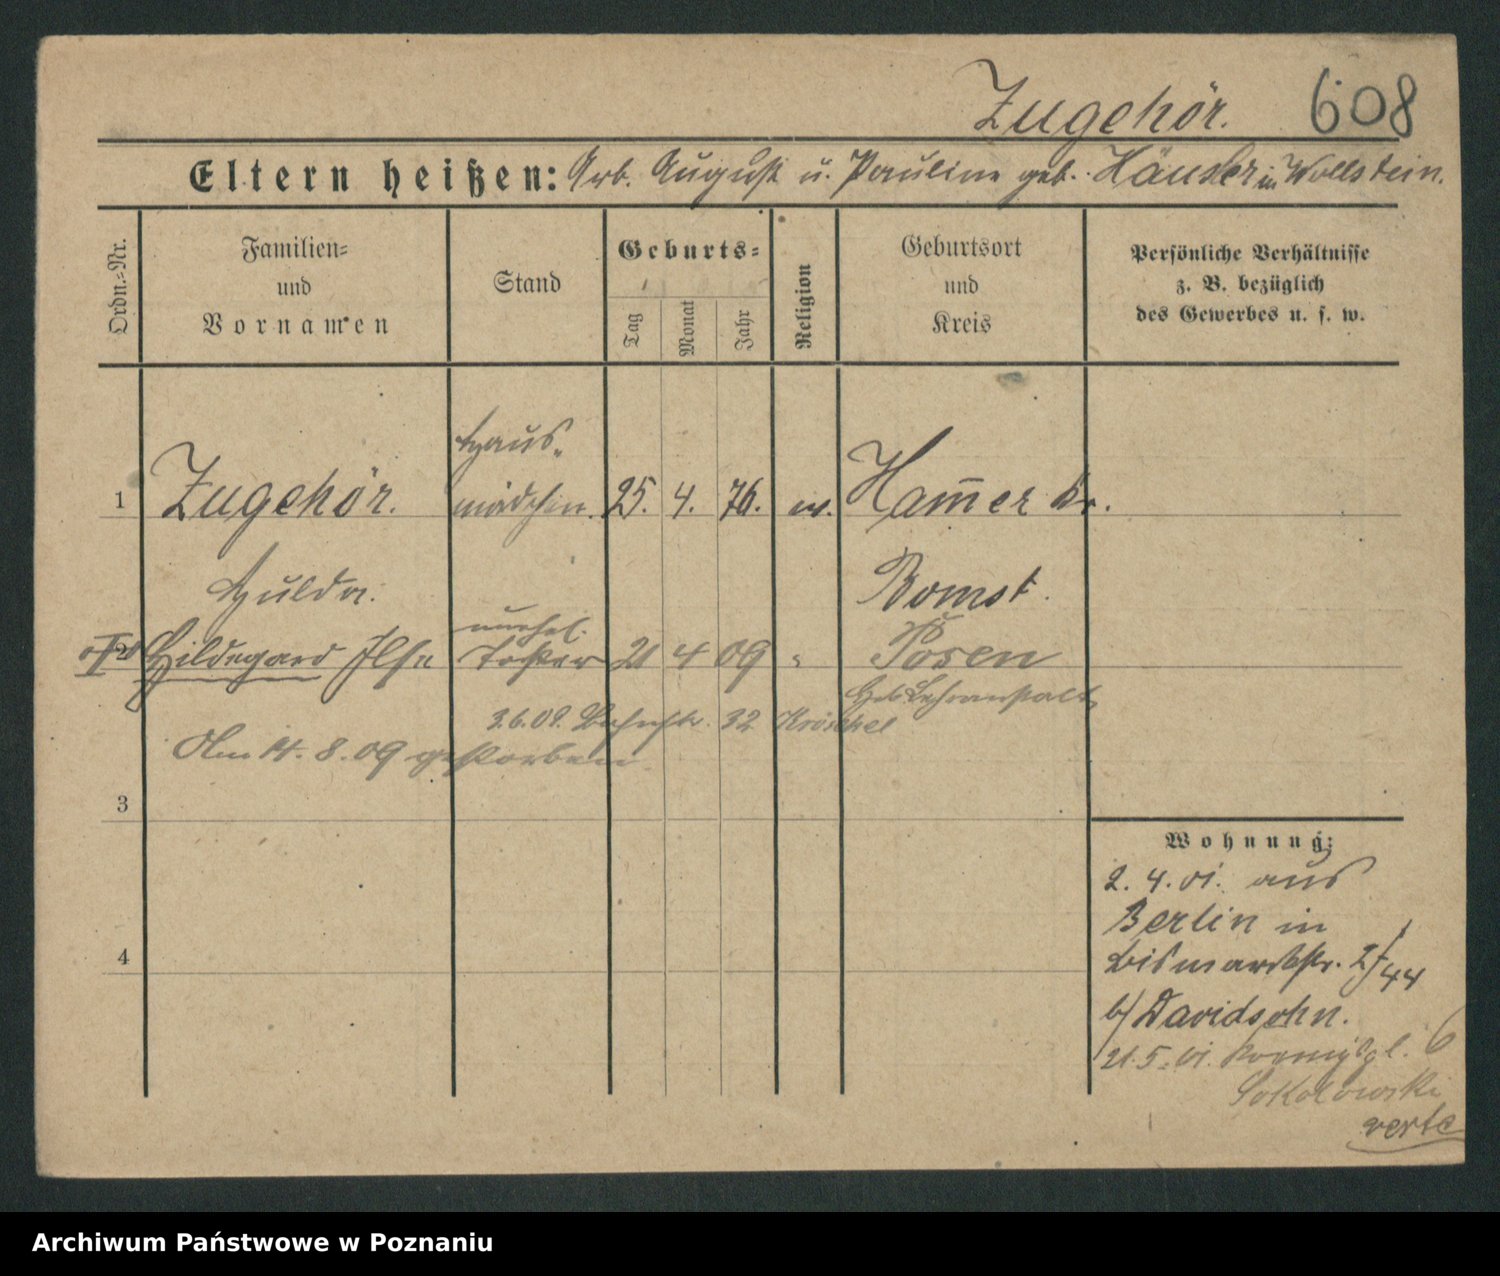 Zugehör. 608
Eltern heißen: Arb. August u. Pauline geb. Häusler in Wollstein.
Ordn.=Nr.
Familien=
und
Vornamen
Stand
Geburts=
Tag
Monat
Jahr
Religion
Geburtsort
und
Kreis
Persönliche Verhältnisse
z. B. bezüglich
des Gewerbes u. s. w.
Haus-
1 Zugehör. mädchen. 25. 4. 76. ev. Ham̄er Kr.
Hulda. Bomst.
unehel.
2 Hildegard Ilse Tochter 21 4 09 " Posen
Heb Lehranstalt
3.6.09. Bahnstr. 32
Am 14. 8. 09 gestorben
3
4
Wohnung:
2. 4. 01. aus
Berlin in
Bismarckstr.
b/ Davidsohn.
21. 5. 01. 6
Sokolowski
verte
Archiwum Państwowe w Poznaniu